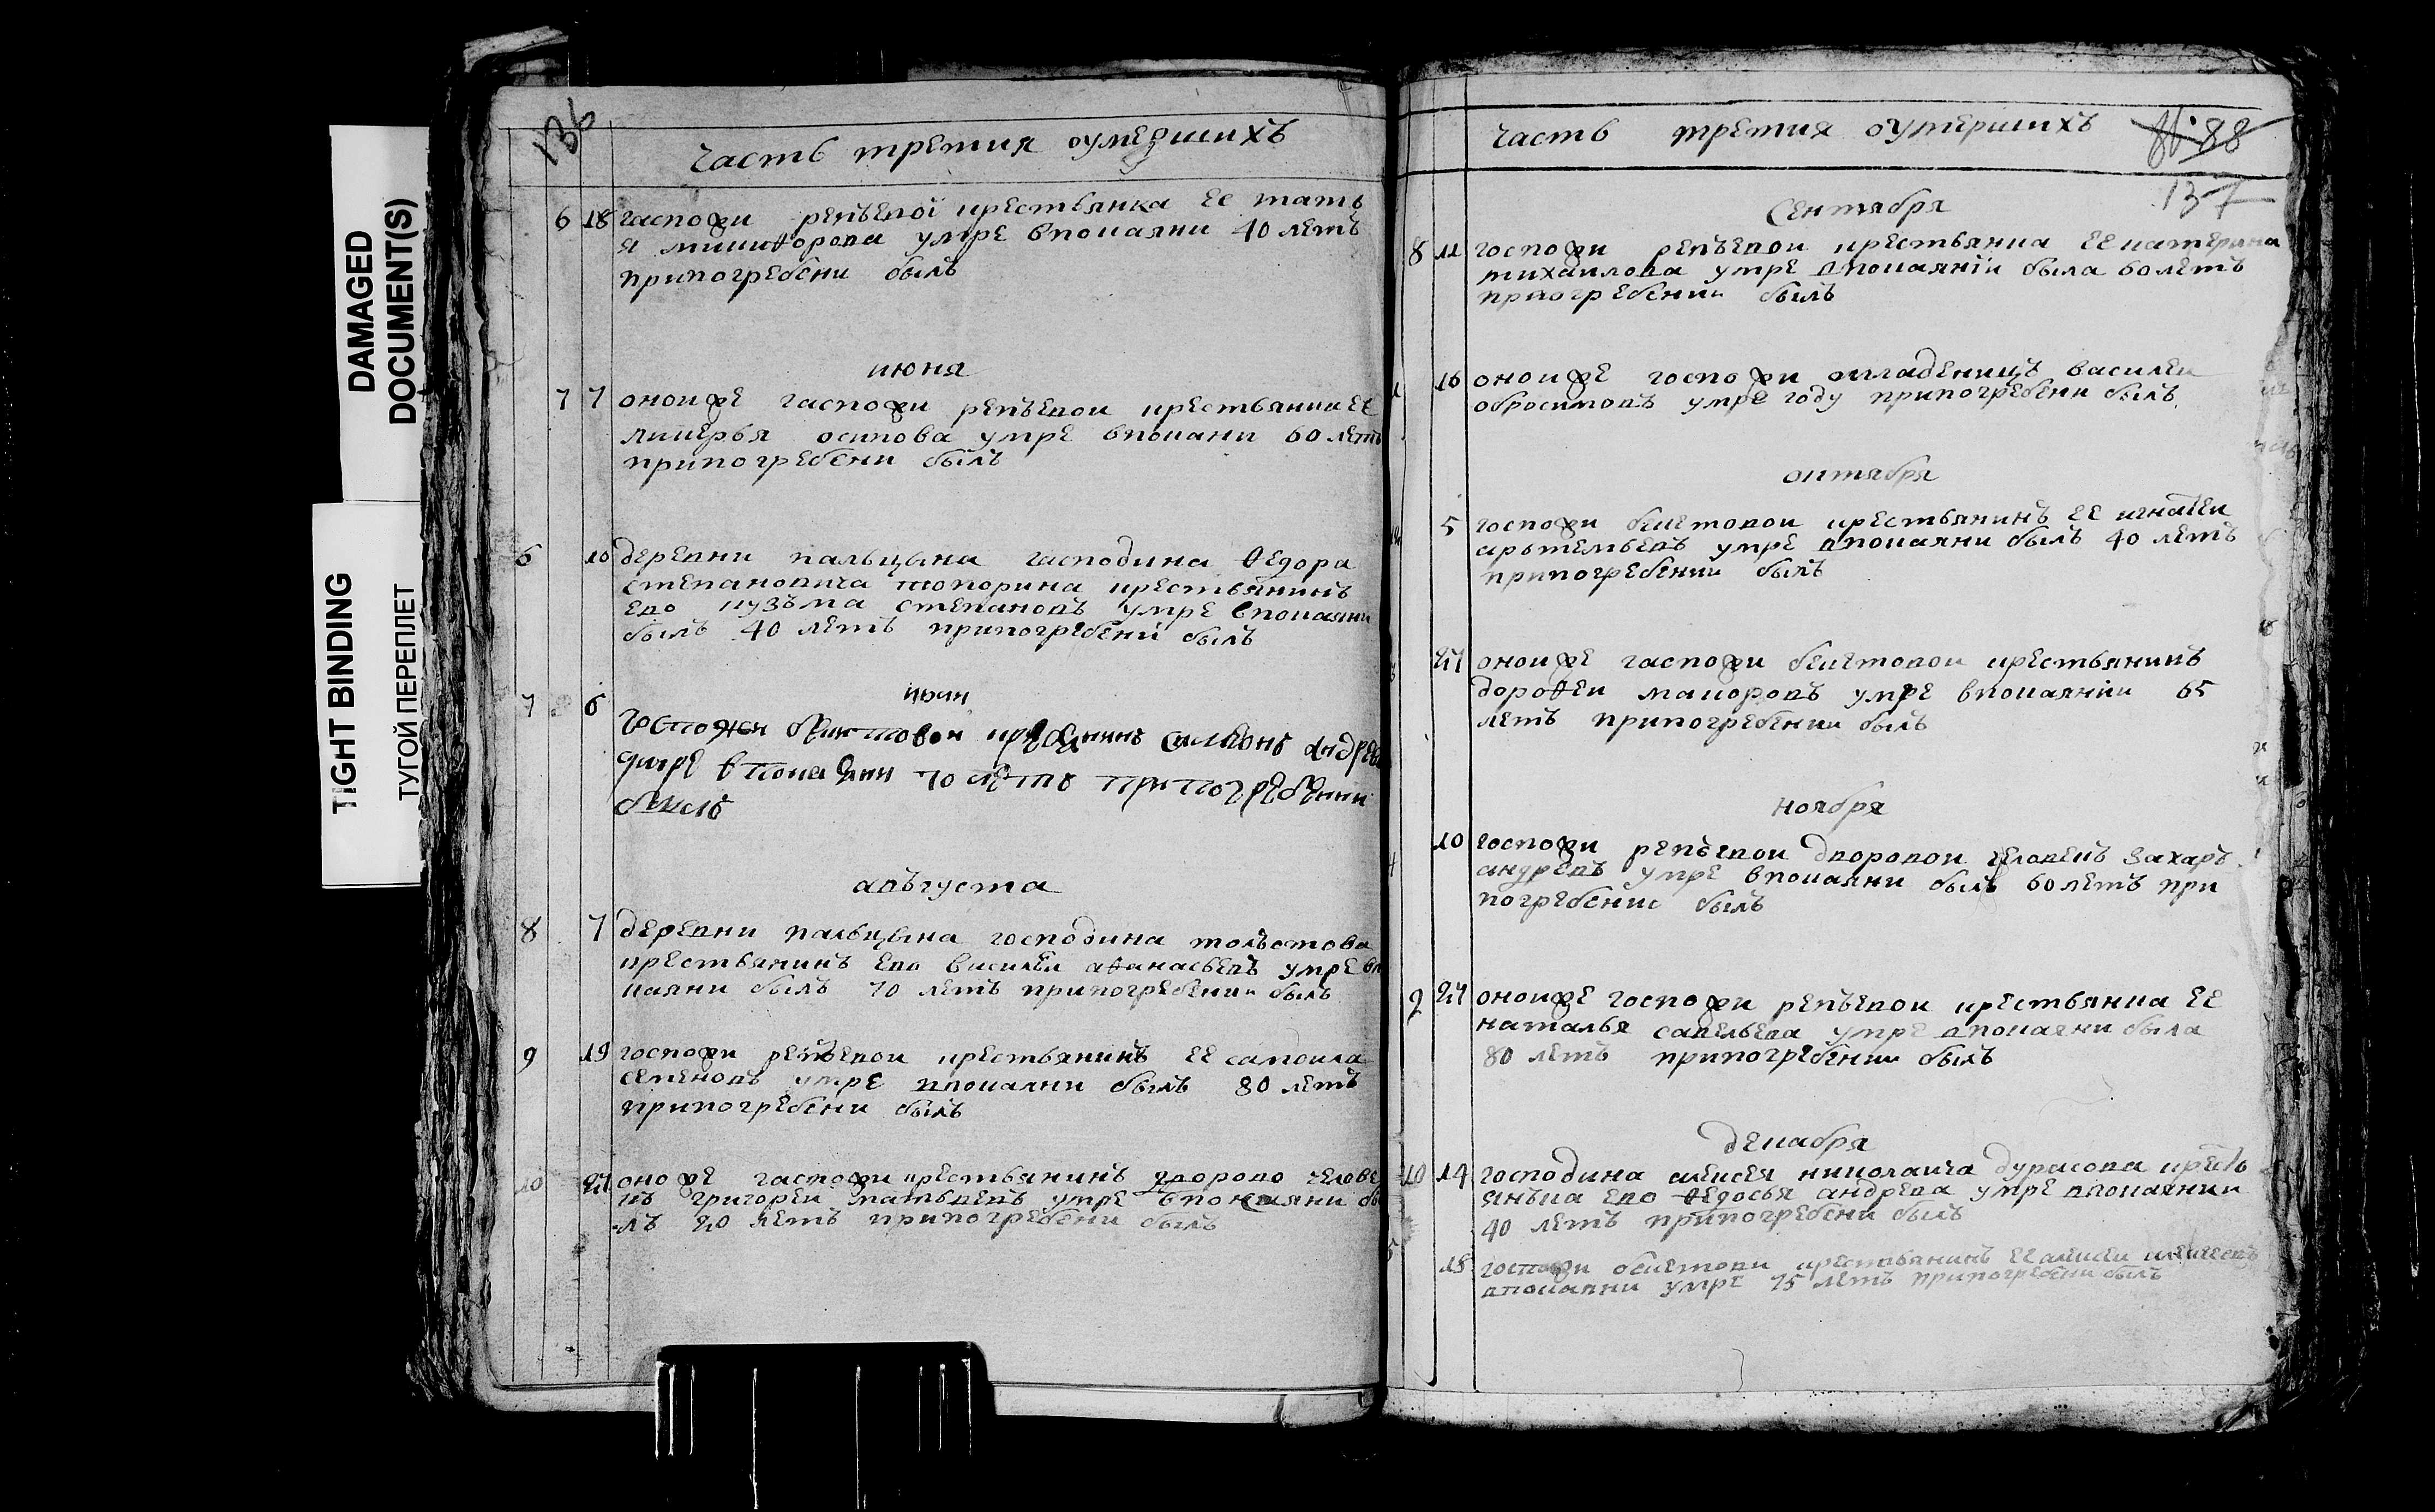 DAMAGED
DOCUMENT(S)
TIGHT BINDING
ТУГОЙ ПЕРЕПЛЕТ
136
часть третия оумершихъ
6 18 гаспожи репъевої крестьянка ее тать
я умре впокаяни 40 летъ
припогребени былъ
июня
7 7 оноиже гаспожи репъевои крестьянка ее
лукерья осипова умре впокани 60 летъ
припогребени былъ
6 10 деревни пальцына гасподина ѳедора
степановича топорина крестьянинъ
ево кузьма степановъ умре впокаяни
былъ 40 летъ припогребени былъ
июля
7 6 госпожи бекетовои симионъ андрев
умре впокаянии 70 летъ припогребении
былъ
авъгуста
8 7 деревни пальцына господина толъстова
крестьянинъ ево василеи аѳанасьевъ умре впо
каяни былъ 70 летъ припогребении былъ
9 19 госпожи репъевои крестьянинъ ее самоила
семеновъ умре впокаяни былъ 80 летъ
припогребени былъ
10 24 оноже гаспожи крестьянинъ дворово челове
къ григореи матьвеевъ умре впокаяни бы
лъ 20 летъ припогребени былъ
часть третия оумершихъ
88
137
Сентября
8 11 госпожи репъевои крестьянка ее катерина
михаилова умре впокаяніи была 60 летъ
припогребении былъ
16 оноиже госпожи младеницъ василеи
обросимовъ умре году припогребени былъ
октября
5 госпожи бекетовои крестьянинъ ее игнатеи
арьтемьевъ умре впокаяни былъ 40 летъ
припогребении былъ
24 оноиже гаспожи бекетовои крестьянинъ
дороѳеи маиоровъ умре впокаянии 65
летъ припогребении былъ
ноября
10 госпожи репъевои дворовои человекъ захаръ
андревъ умре впокаяни былъ 60 летъ при
погребение былъ
2 24 оноиже госпожи репъевои крестьянка ее
наталья савельева умре впокаяни была
80 летъ припогребении былъ
декабря
10 14 господина алексея николаича дурасова кресть
янька ево ѳедосья андрева умре впокаянии
40 летъ припогребени былъ
15 госпожи бекетови крестьянинъ ее алексеи алексеевъ
впокаяни умре 75 летъ припогребени былъ